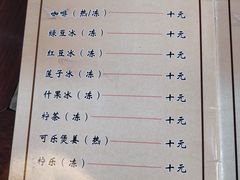 咖啡（热/冻） 十元
绿豆冰（冻） 十元
红豆冰（冻） 十元
莲子冰（冻） 十元
什果冰（冻） 十元
柠茶（冻） 十元
可乐煲姜（热） 十元
柠乐（冻） 十元